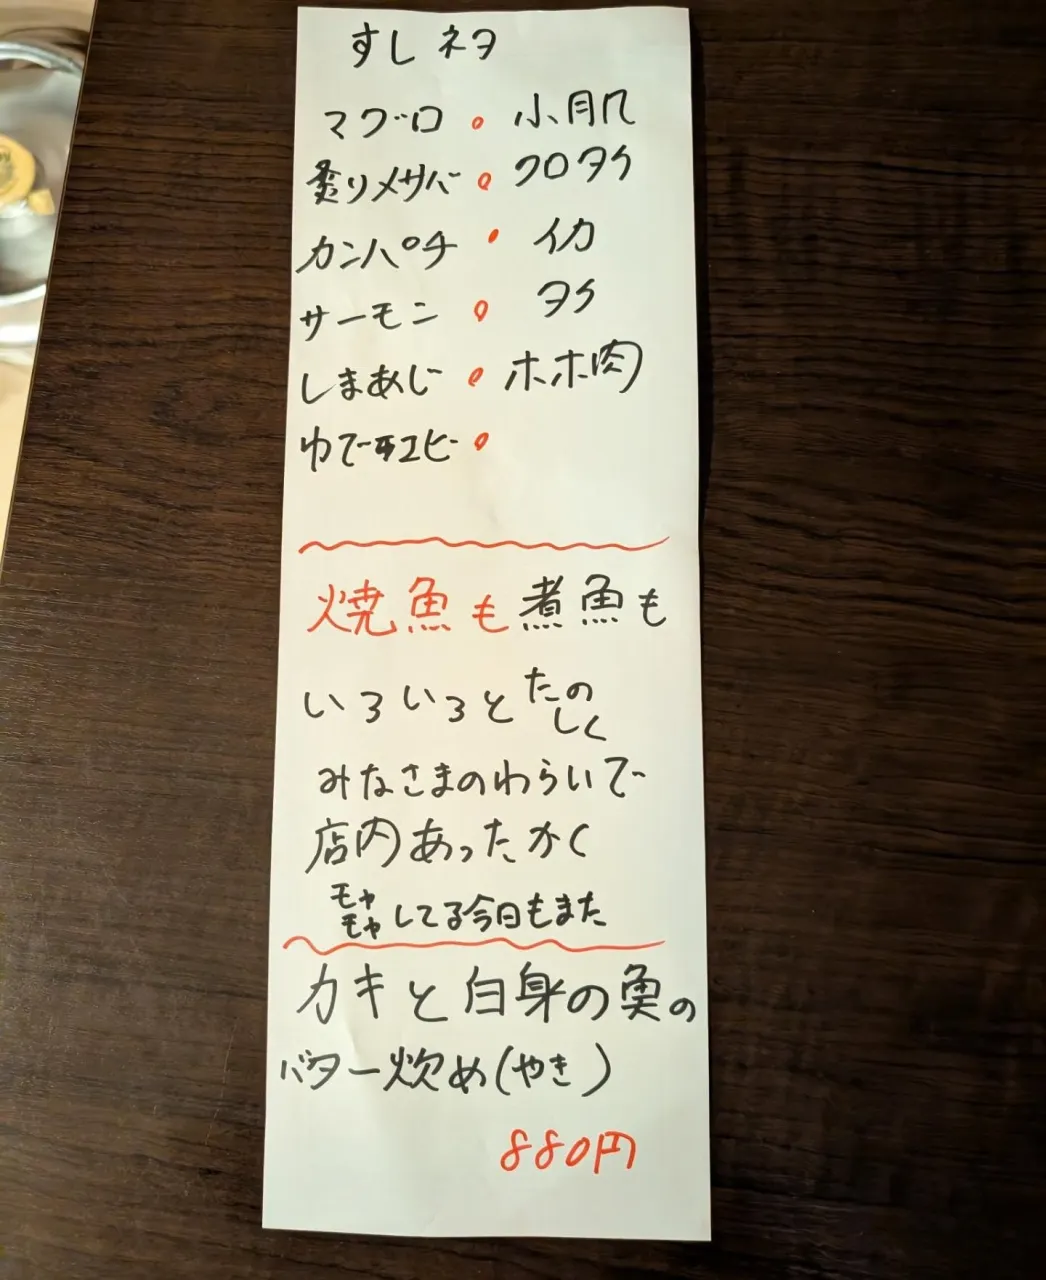 すしネタ
マグロ。小肌
炙りメサバ。クロタイ
カンパチ・イカ
サーモン。タコ
しまあじ。ホホ肉
ゆでエビ。
焼魚も煮魚も
いろいろとたのしく
みなさまのわらいで
店内あったかく
モヤモヤしてる今日もまた
カキと白身の魚の
バター炊め(やき)
880円